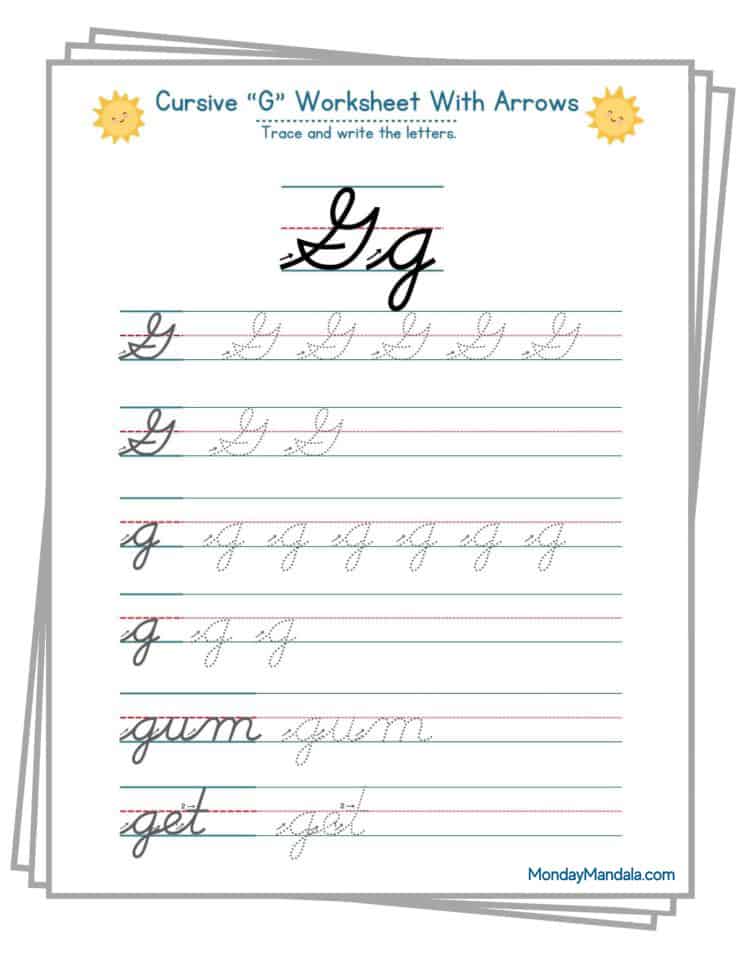 Cursive “G” Worksheet With Arrows
Trace and write the letters.
Gg
G G G G G G
G G G
g g g g g g g
g g g
gum gum
get get
MondayMandala.com